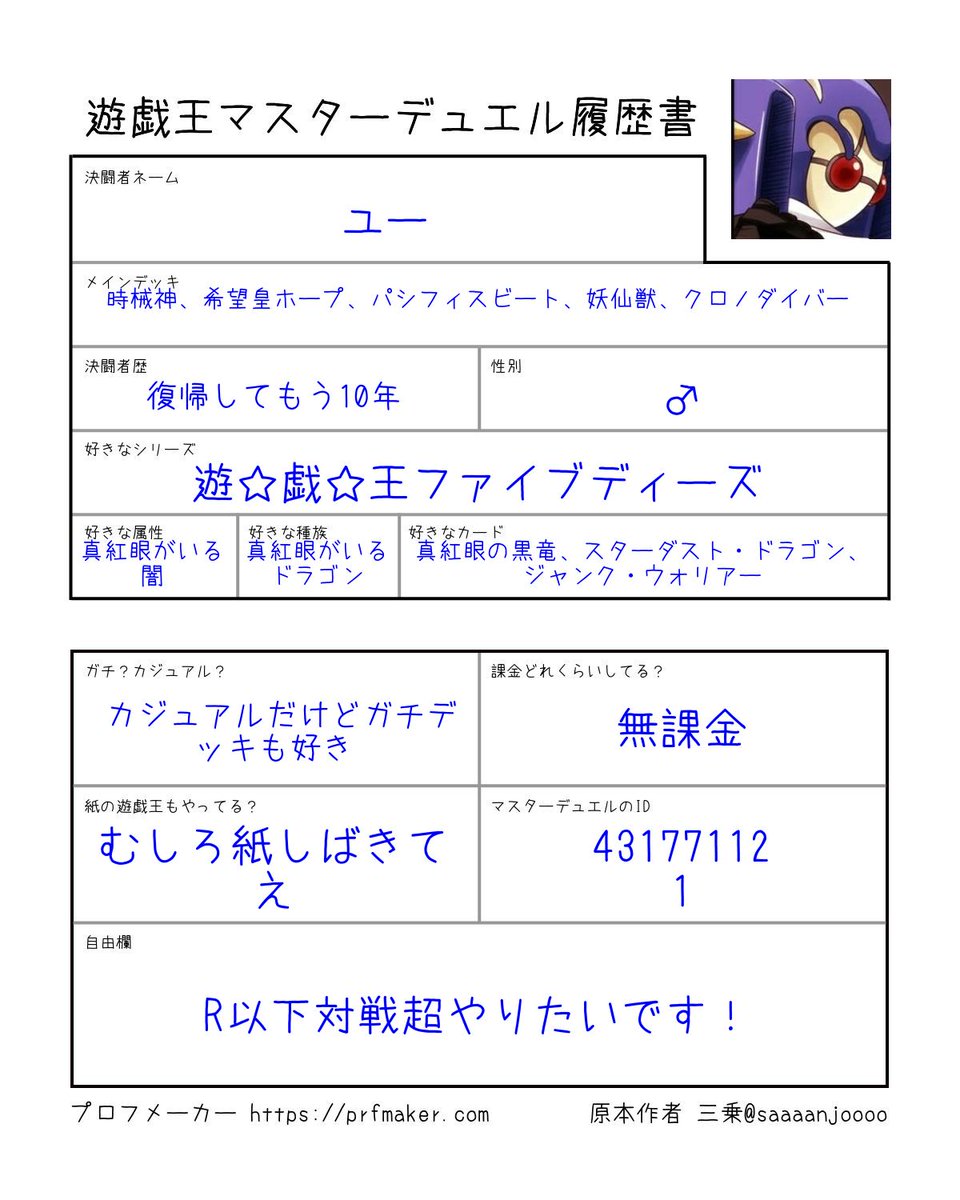 遊戯王マスターデュエル履歴書
決闘者ネーム
ユー
メインデッキ
時械神、希望皇ホープ、パシフィスビート、妖仙獣、クロノダイバー
決闘者歴
復帰してもう10年
性別
♂
好きなシリーズ
遊☆戯☆王ファイブディーズ
好きな属性
真紅眼がいる
闇
好きな種族
真紅眼がいる
ドラゴン
好きなカード
真紅眼の黒竜、スターダスト・ドラゴン、
ジャンク・ウォリアー
ガチ？カジュアル？
カジュアルだけどガチデ
ッキも好き
課金どれくらいしてる？
無課金
紙の遊戯王もやってる？
むしろ紙しばきて
え
マスターデュエルのID
43177112
1
自由欄
R以下対戦超やりたいです！
プロフメーカー https://prfmaker.com
原本作者 三乗@saaaanjoooo